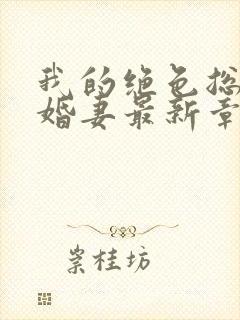 我的绝色总
婚妻最新章
崇桂坊